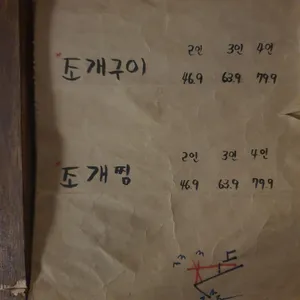 2인 3인 4인
조개구이 46.9 63.9 79.9
2인 3인 4인
조개찜 46.9 63.9 79.9